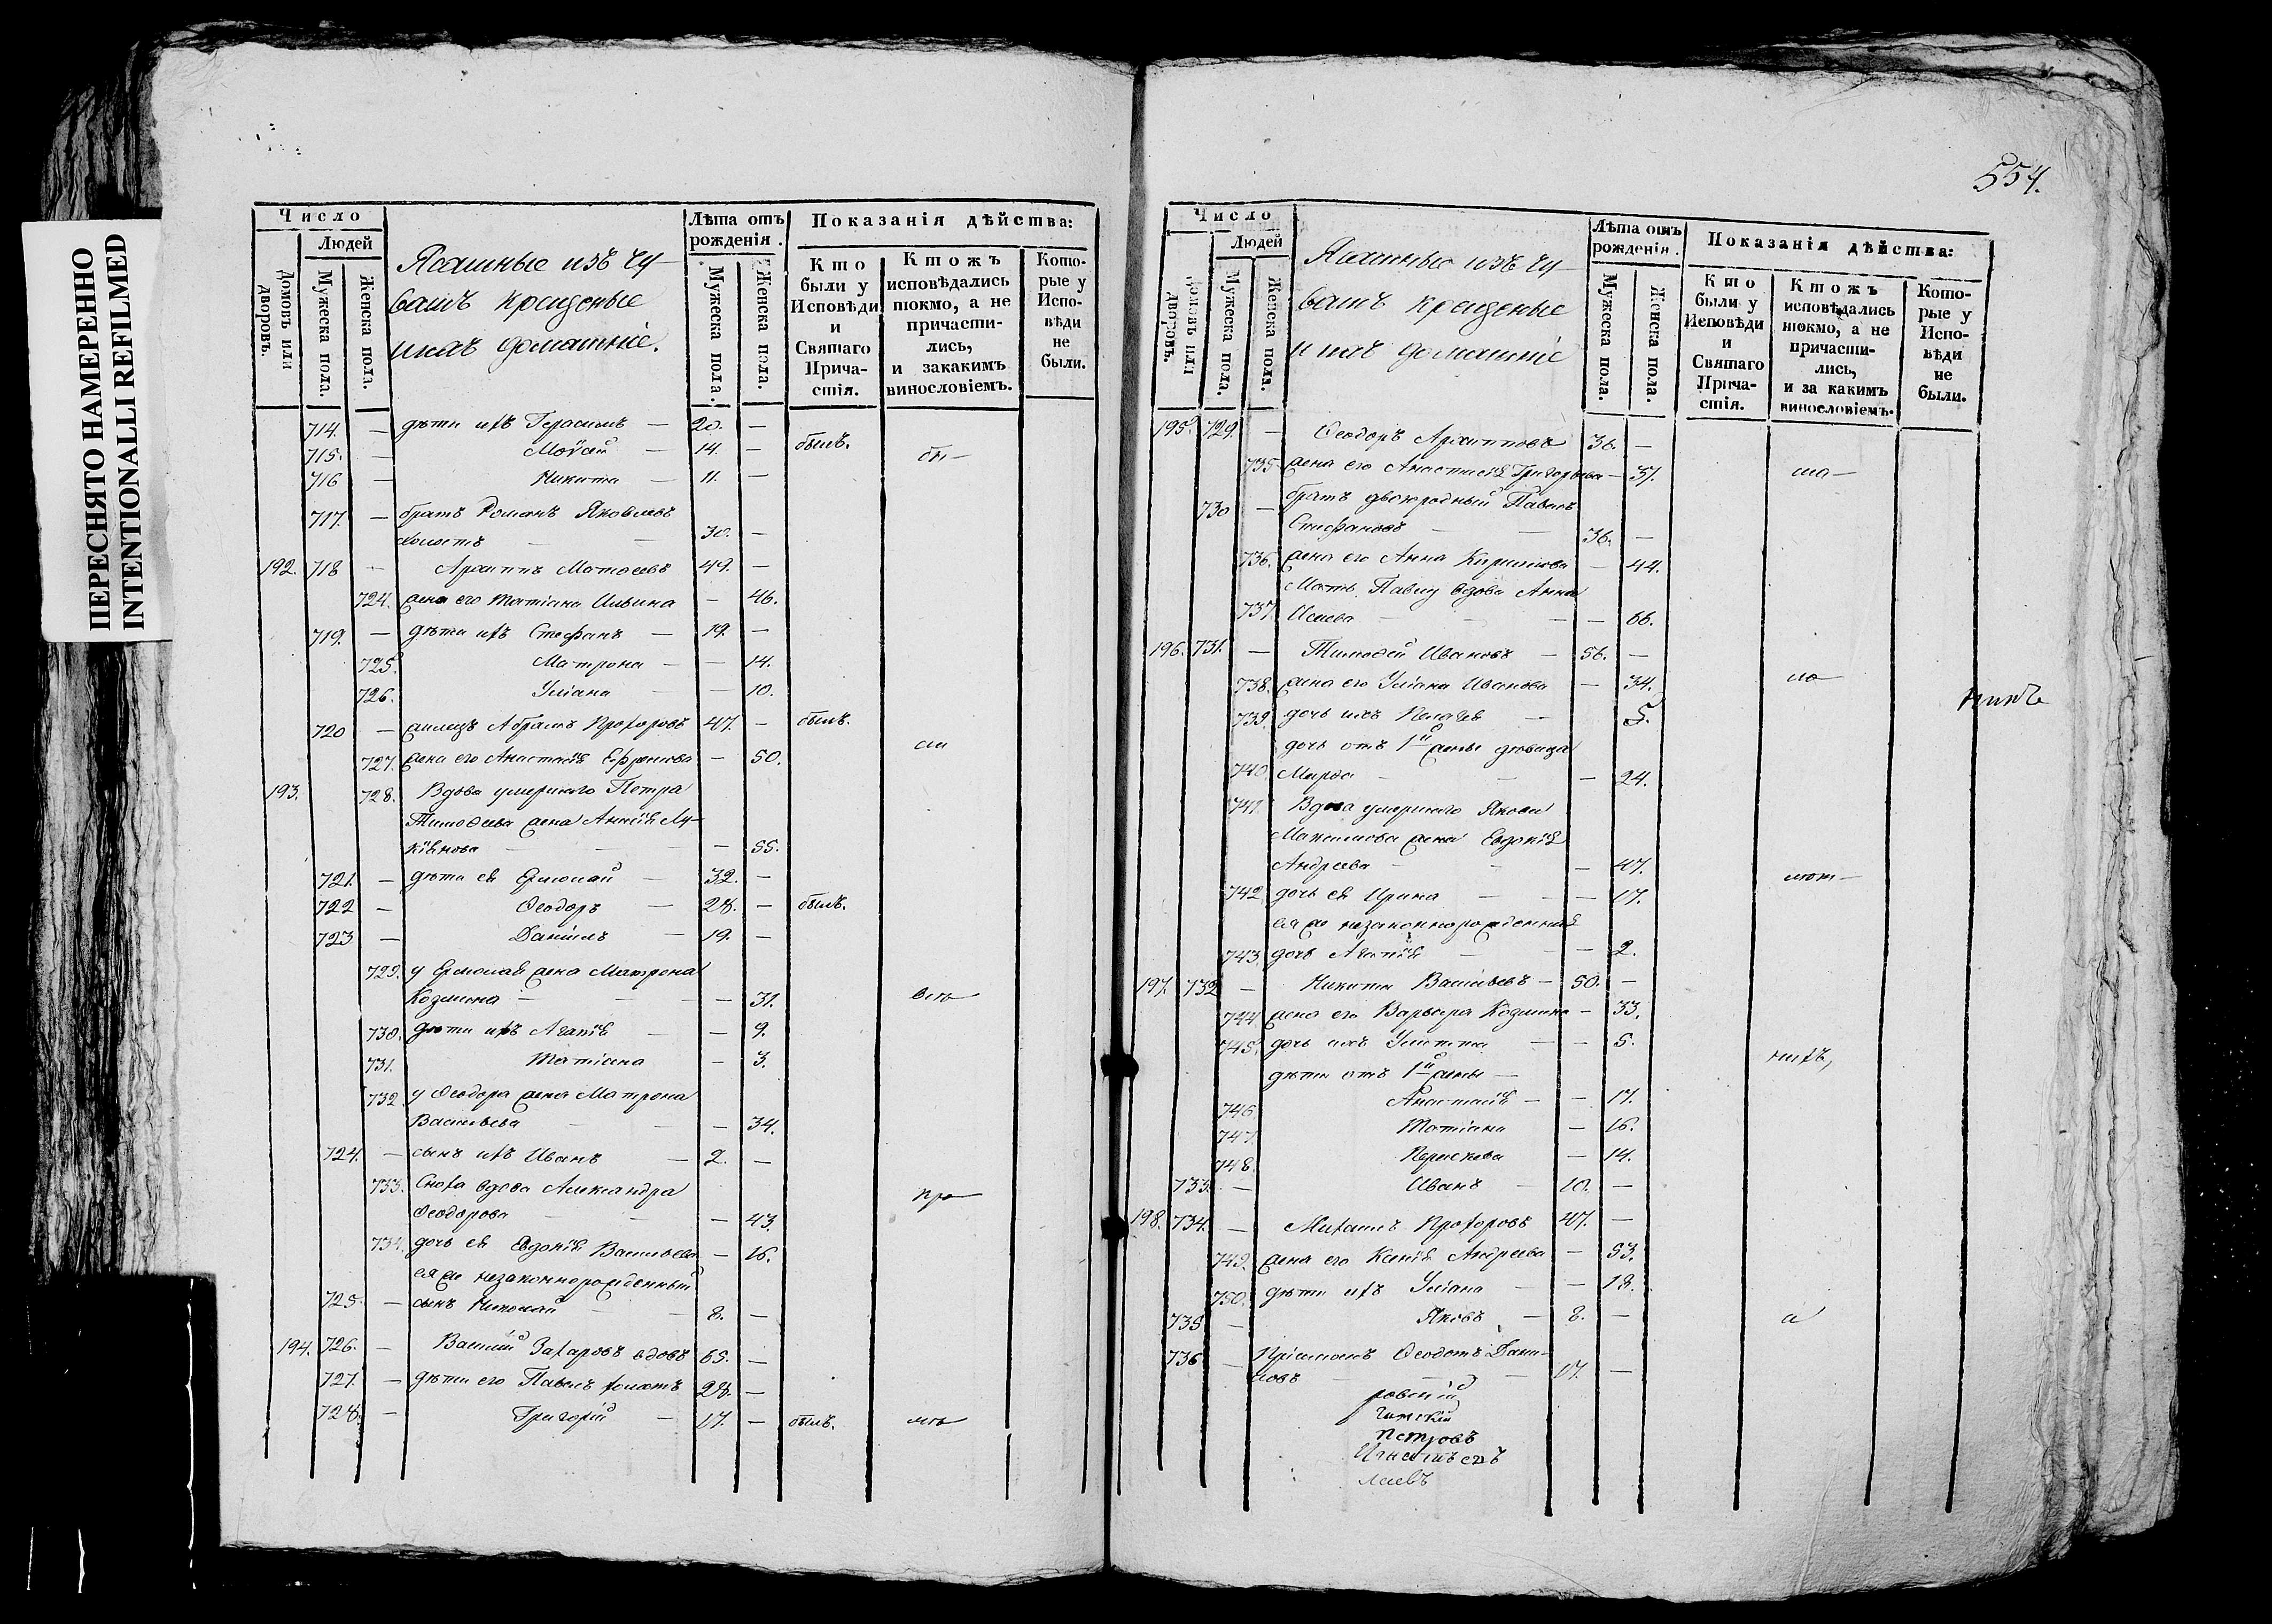 ПЕРЕСНЯТО НАМЕРЕННО
INTENTIONALLI REFILMED
Число
Людей
Домовъ или дворовъ.
Мужеска пола.
Женска пола.
Ясашные изъ чу-
вашъ крещеные
и ихъ домашніе.
Лѣта отъ рожденія.
Мужеска пола.
Женска пола.
Показанія дѣйства:
Кто были у Исповѣди и Святаго Причастія.
Ктожъ исповѣдались токмо, а не причастились, и закакимъ винословіемъ.
Которые у Исповѣди не были.
714. — дѣти ихъ Герасимъ — 20. —
715. — Моѵсей — 14. — былъ.
716 — Никита — 11. —
717. — братъ Романъ Яковлевъ
холостъ — — 30. —
192. 718 — Архиппъ Матѳеевъ 49. —
724. жена его Татіана Ильина — 46.
719. — дѣти ихъ Стефанъ — 19. —
725. Матрона — — 14.
726. Уліана — — 10.
720 — жилецъ Абрамъ Прохоровъ 47. — былъ.
727. жена его Анастасія Ефремова — 50.
193. 728. Вдова умершаго Петра
Тимоѳеева жена Аннія Лу-
кіянова — — — 55.
721. — дѣти ея Ермолай — 32. —
722 — Ѳеодоръ — 28. — былъ.
723 — Даніилъ — 19. —
729. у Ермолая жена Матрона
Козмина — — — 31.
730. дѣти ихъ Агапія — — 9.
731. Татіана — 3.
732. у Ѳеодора жена Матрона
Васильева — — — 34.
724. — сынъ ихъ Иванъ — 2. —
733. Сноха вдова Александра
Ѳеодорова — — — 43.
734. дочь ея Евдокія Васильева — 16.
ея же незаконнорожденный
725. — сынъ Николай — — 8. —
194. 726. — Василій Захаровъ вдовъ 65. —
727. — дѣти его Павелъ холостъ 28. —
728. — Григорій — 17. — былъ.
554.
Число
Людей
Домовъ или дворовъ.
Мужеска пола.
Женска пола.
Ясашные изъ чу-
вашъ крещеные
и ихъ домашніе
Лѣта отъ рожденія.
Мужеска пола.
Женска пола.
Показанія дѣйства:
Кто были у Исповѣди и Святаго Причастія.
Ктожъ исповѣдались токмо, а не причастились, и за какимъ винословіемъ.
Которые у Исповѣди не были.
195. 729. — Ѳеодоръ Архипповъ 36. —
735. жена его Анастасія Григорьева — 37.
братъ двоюродный Павелъ
730 — Стефановъ — — 36. —
736. жена его Анна Кирилова — 44.
Мать Павлу вдова Анна
737. Исаева — — — — 66.
196. 731. — Тимоѳей Ивановъ — 56. —
738. жена его Уліана Иванова — 34.
739. дочь ихъ Пелагея — 5.
дочь отъ 1й жены дѣвица
740. Марѳа — — — 24.
741. Вдова умершаго Якова
Максимова жена Евдокія
Андреева — — — 47.
742. дочь ея Ирина — — — 17.
ея же незаконнорожденная
743. дочь Агапія — — 2.
197. 732 — Никита Васильевъ — 50. —
744. жена его Варвара Козмина — 33.
745. дочь ихъ Улитта — — 5.
дѣти отъ 1й жены —
746. Анастасія — — 17.
747. Татіана — 16.
748. Параскева — 14.
733. — Иванъ — 10. —
198. 734. — Михаилъ Прохоровъ 47. —
749. жена его Ксенія Андреева — 53.
750. дѣти ихъ Уліана — — 13.
735 — Яковъ — 8. —
736. — Пріемышъ Ѳеодотъ Дани-
ловъ — — — 17. —
петровъ